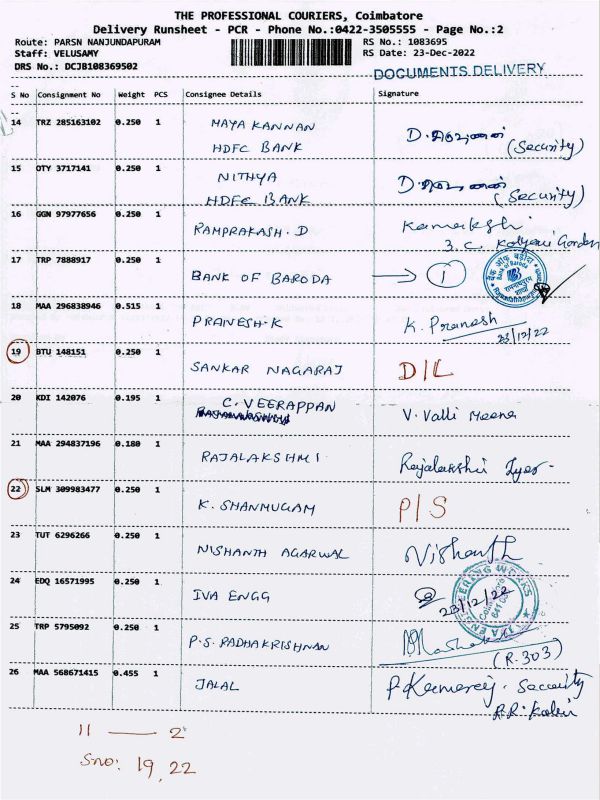 THE PROFESSIONAL COURIERS, Coimbatore
Delivery Runsheet - PCR - Phone No.:0422-3505555 - Page No.:2
Route: PARSN NANJUNDAPURAM RS No.: 1083695
Staff: VELUSAMY RS Date: 23-Dec-2022
DRS No.: DCJB108369502
DOCUMENTS DELIVERY
S No Consignment No Weight PCS Consignee Details Signature
14 TRZ 285163102 0.250 1 MAYA KANNAN
HDFC BANK (Security)
15 OTY 3717141 0.250 1 NITHYA
HDFC BANK (Security)
16 GGN 97977656 0.250 1 RAMPRAKASH.D Kamakshi
17 TRP 7888917 0.250 1 BANK OF BARODA → 1
Bank of Baroda
18 MAA 296838946 0.515 1 PRANESH.K K. Pranesh
23/12/22
19 BTU 148151 0.250 1 SANKAR NAGARAJ D/L
20 KDI 142076 0.195 1 C. VEERAPPAN V. Valli Meena
21 MAA 294837196 0.180 1 RAJALAKSHMI Rajalakshmi Iyer
22 SLM 309983477 0.250 1 K. SHANMUGAM P/S
23 TUT 6296266 0.250 1 NISHANTH AGARWAL Nishanth
24 EDQ 16571995 0.250 1 IVA ENGG 23/12/22
25 TRP 5795092 0.250 1 P.S. RADHAKRISHNAN
(R.303)
26 MAA 568671415 0.455 1 JALAL P. Kumaraj. Security
11 — 2
Sno: 19, 22